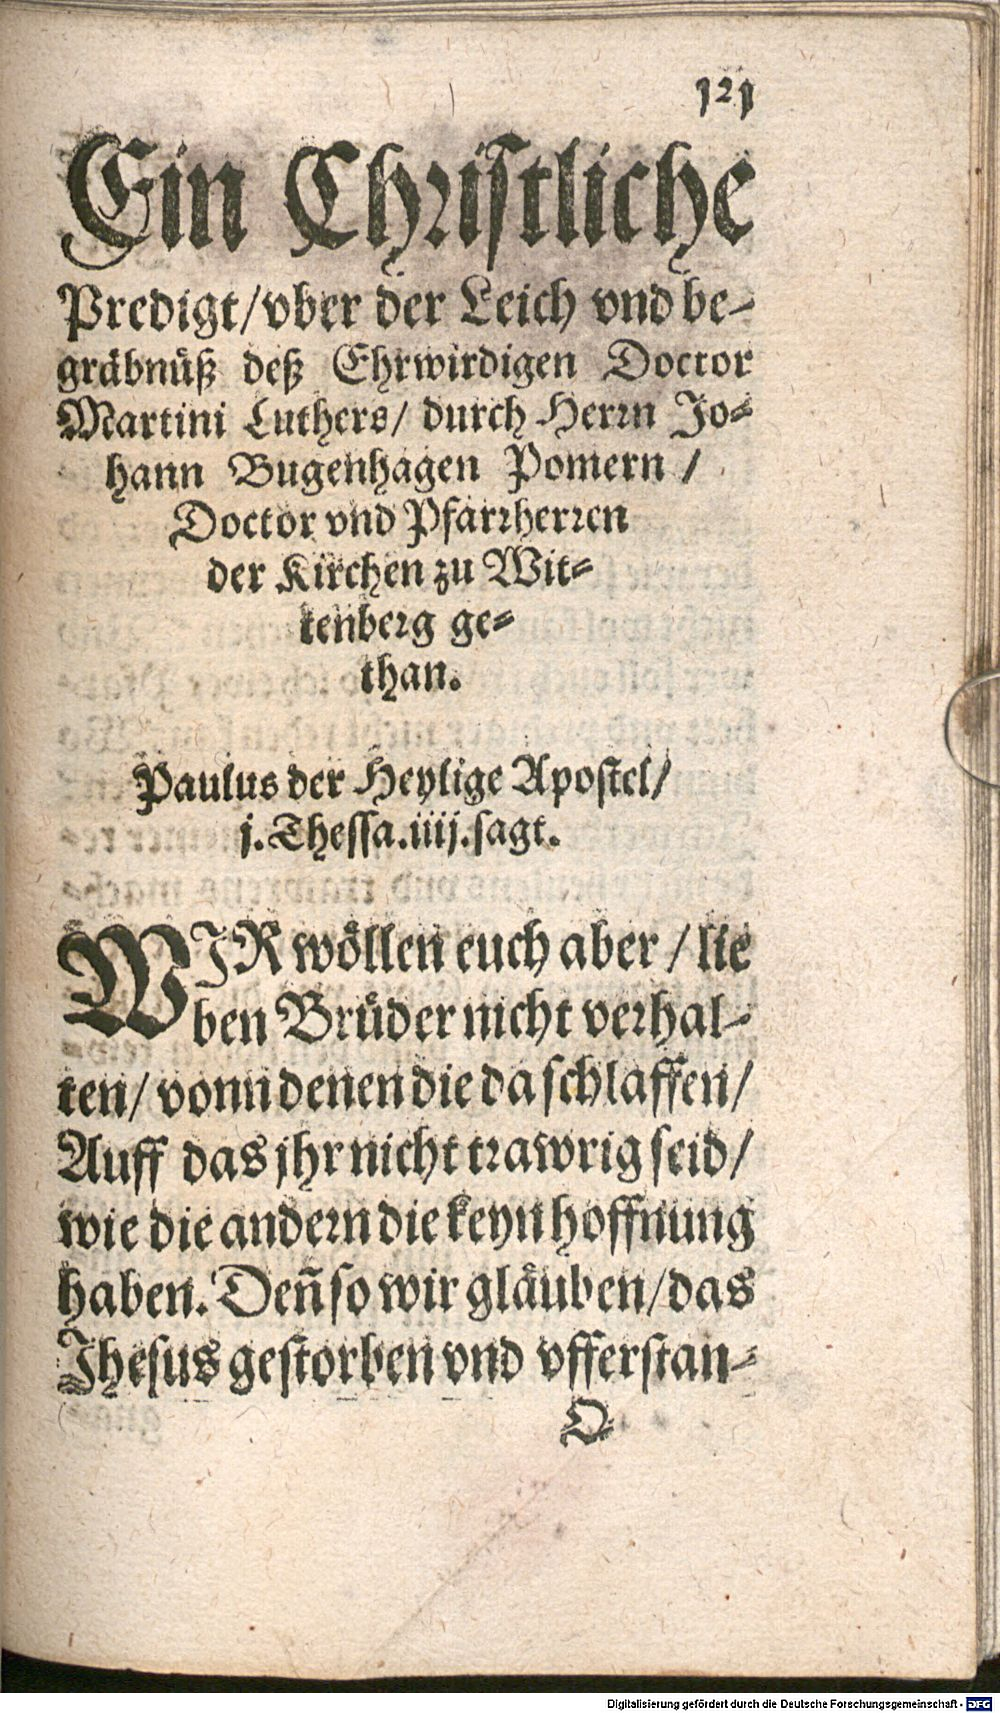 121
Ein Christliche
Predigt/vber der Leich vnd be-
gräbnüß deß Ehrwirdigen Doctor
Martini Luthers/ durch Herrn Jo-
hann Bugenhagen Pomern /
Doctor vnd Pfarrherren
der Kirchen zu Wit-
tenberg ge-
than.
Paulus der Heylige Apostel/
j. Thessa. iiij. sagt.
WIR wöllen euch aber / lie
ben Brüder nicht verhal-
ten/ vonn denen die da schlaffen/
Auff das jhr nicht trawrig seid/
wie die andern die keyn hoffnung
haben. Deñ so wir gläuben/das
Jhesus gestorben vnd vfferstan-
O
Digitalisierung gefördert durch die Deutsche Forschungsgemeinschaft - DFG